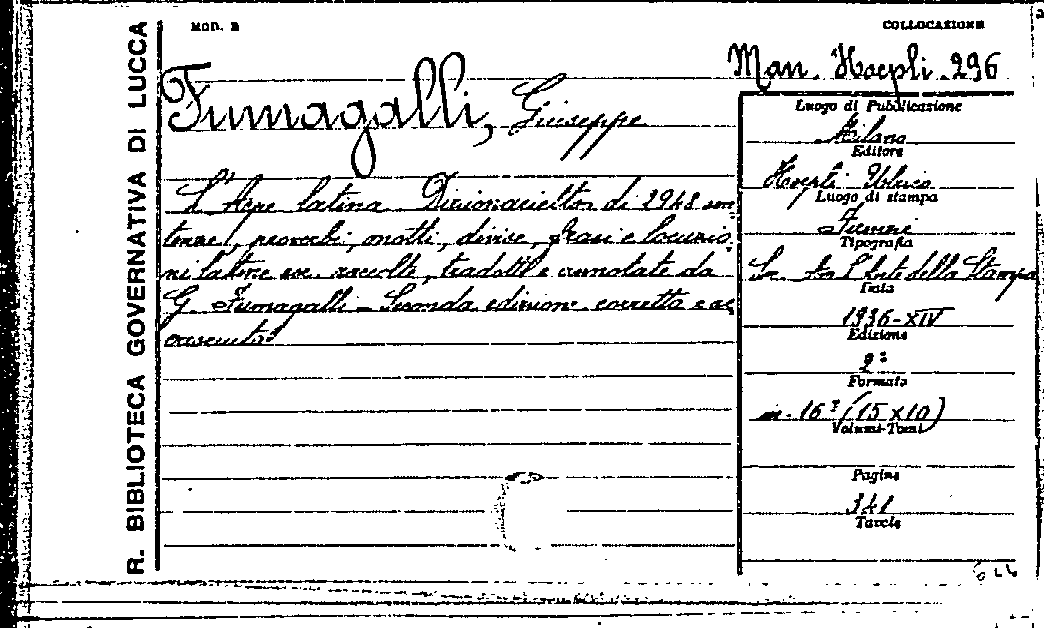 R. BIBLIOTECA GOVERNATIVA DI LUCCA
MOD. B
COLLOCAZIONE
Man. Hoepli. 296
Fumagalli, Giuseppe
L'Ape latina Dizionarietto di 2948 sen
tenze, proverbi, motti, divise, frasi e locuzio
ni latine ecc. raccolte, tradotte e annotate da
G. Fumagalli - Seconda edizione corretta e ac
cresciuta
Luogo di Pubblicazione
Milano
Editore
Hoepli Ulrico
Luogo di stampa
Firenze
Tipografia
L'Arte della Stampa
Data
1936-XIV
Edizione
2ª
Formato
in-16º (15 x 10)
Volumi-Tomi
Pagine
341
Tavole